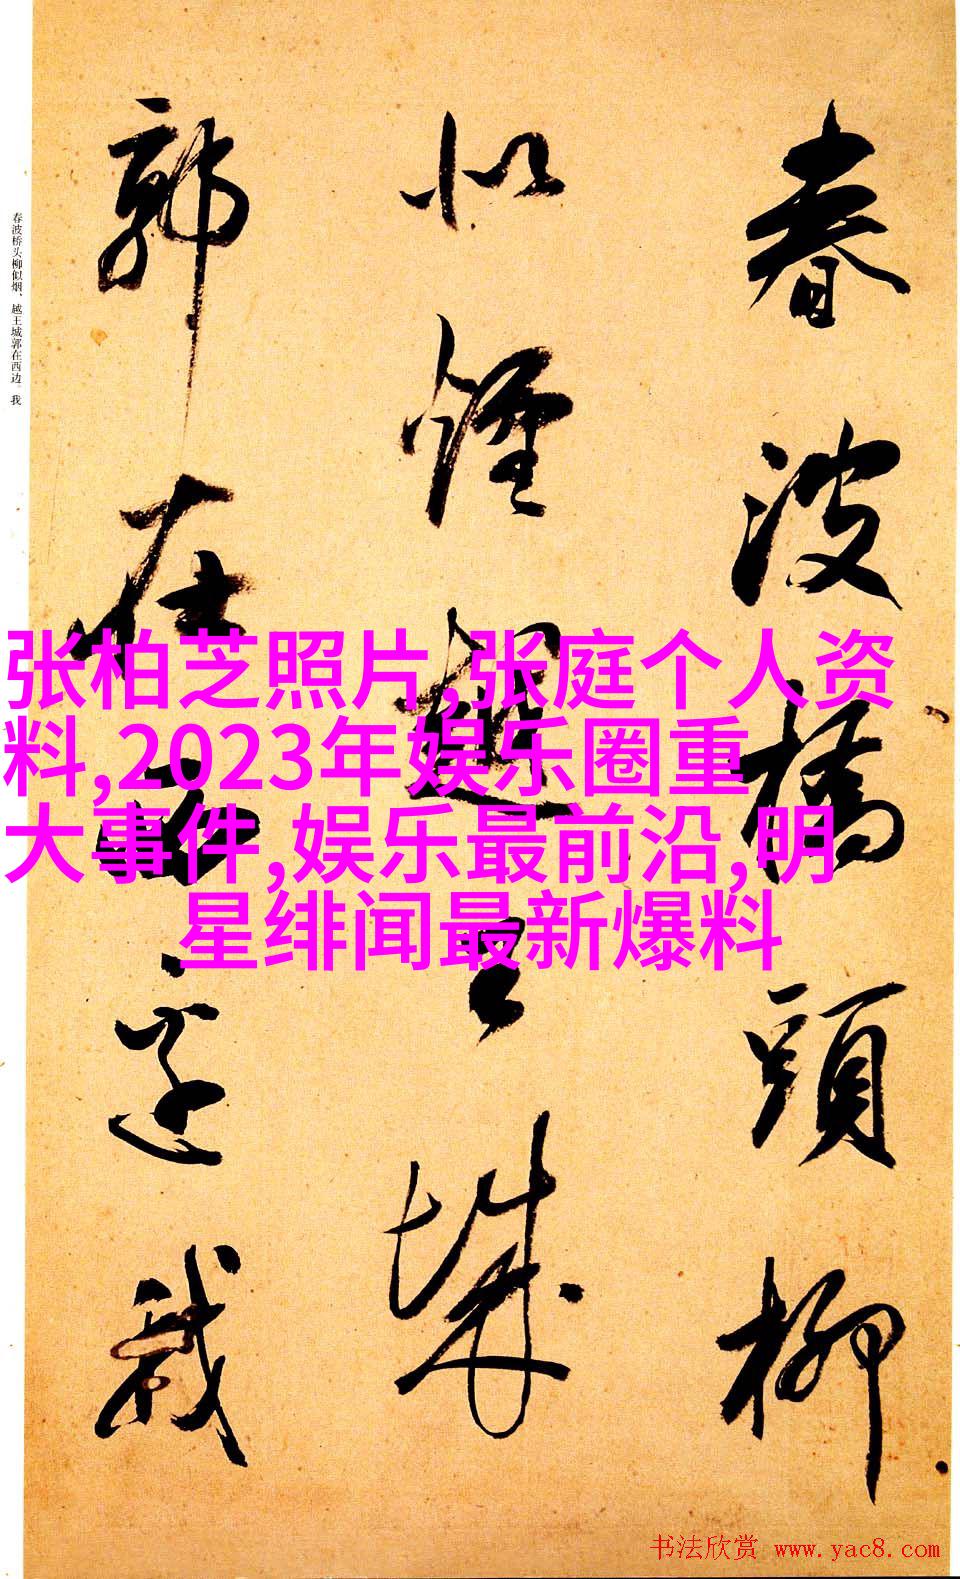 春波橋頭柳
似煙越王城
郭在西邊我
春波桥头柳似烟、越王城郭在西边。我
张柏芝照片,张庭个人资
料,2023年娱乐圈重
大事件,娱乐最前沿,明
星绯闻最新爆料
书法欣赏 www.yac8.com